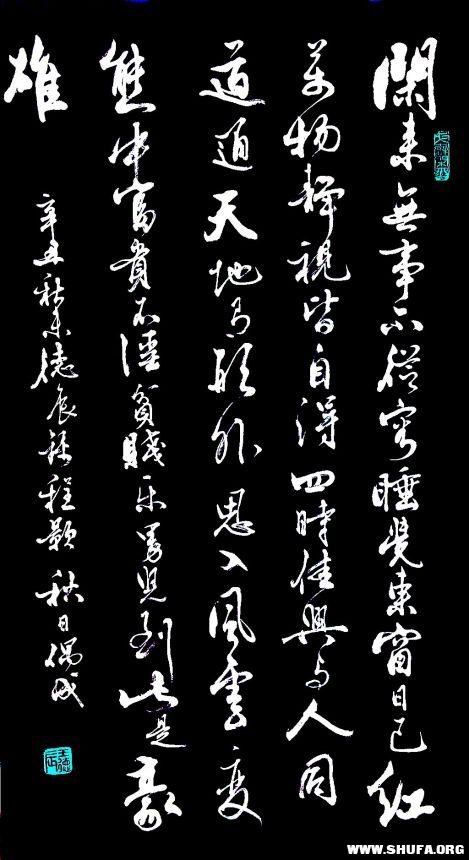 閑来無事不從容睡覺東窗日已紅
萬物靜觀皆自得四時佳興与人同
道通天地有形外思入風雲变
態中富貴不淫貧賤樂男兒到此是豪
雄
辛丑秋末德辰錄程顥秋日偶成
WWW.SHUFA.ORG